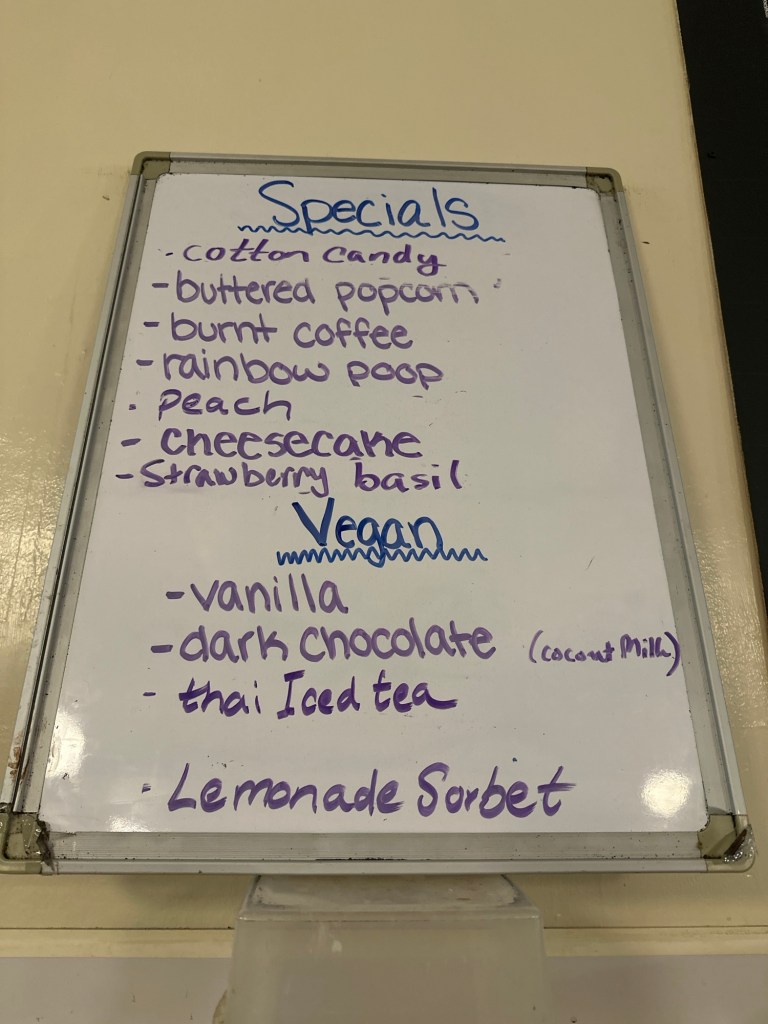 Specials
· cotton candy
- buttered popcorn
- burnt coffee
- rainbow poop
· Peach
- cheesecake
- Strawberry basil
Vegan
- vanilla
- dark chocolate (coconut Milk)
- thai Iced tea
· Lemonade Sorbet